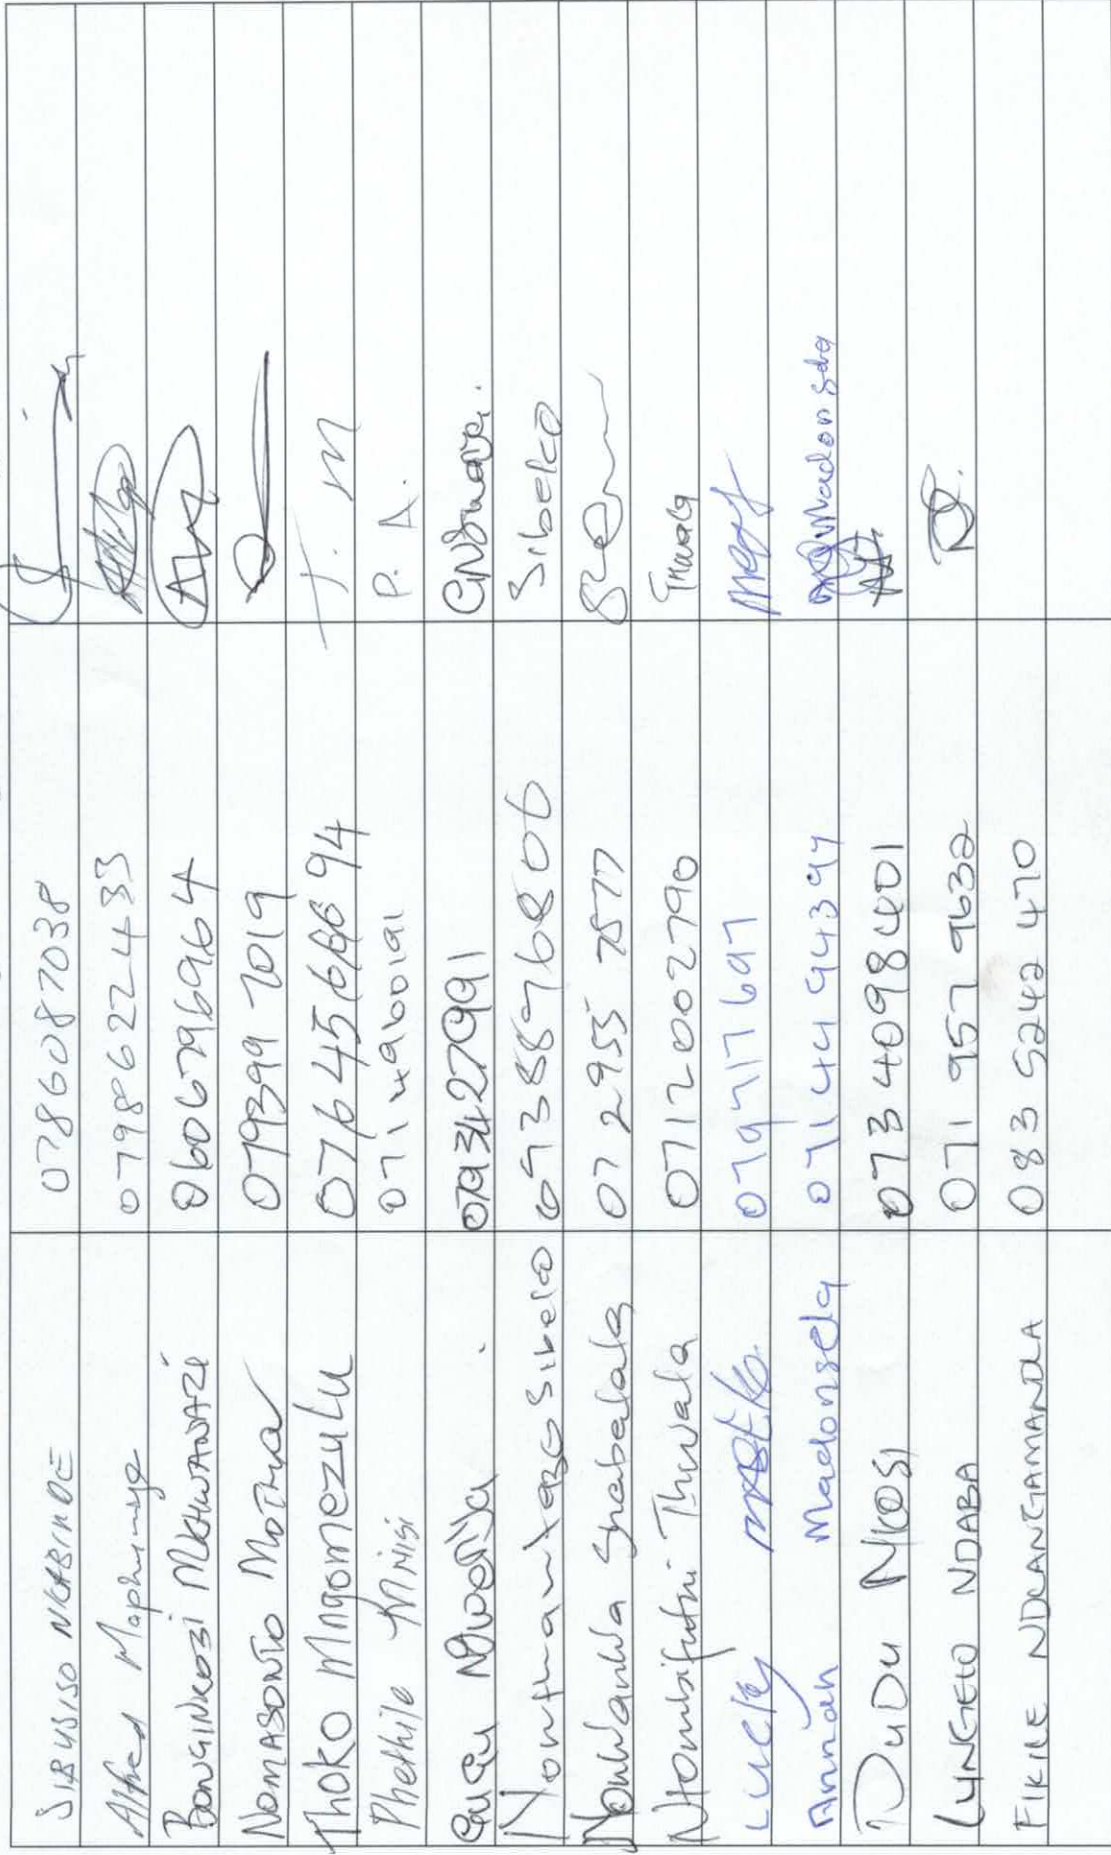 SIBUSISO NGABINDE 0786087038
Alfred Maphanga 0798622433
BONGINKOSI MKHWANAZI 0606796964
NOMASONTO MOTHA 0793997019
Thoko Mngomezulu 0764566694 T. M
Phethile Mnisi 0714960191 P. A.
Gugu 0793427991
Nonthantazo Sibeko 0738876806 Sibeko
Nokwanda Shabalala 072 955 7577
Ntombifuthi Thwala 0712002790 Thwala
Lucky 079717697
Annah Madonsela 0714494394 Madonsela
DUDU NKOSI 0734098401
LUNGELO NDABA 071 957 9632
FIKILE NDLANGAMANDLA 083 5242 470